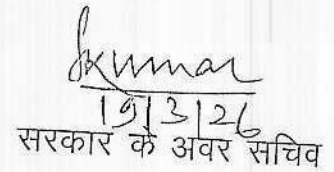 Skumar
19|3|26
सरकार के अवर सचिव